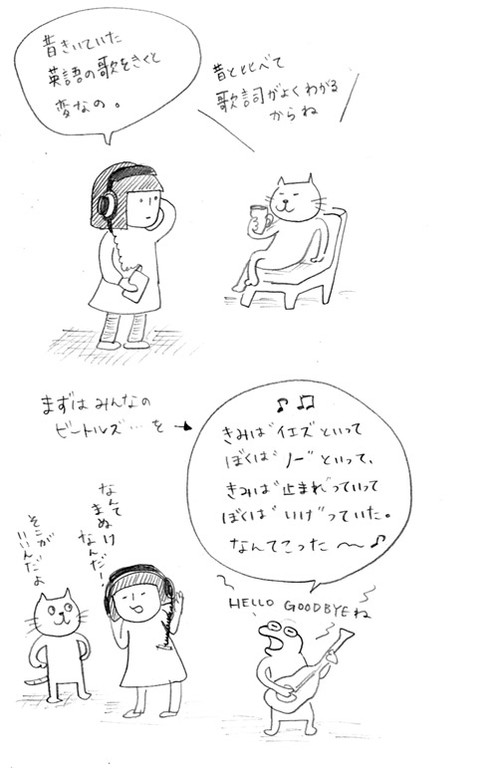 昔きいていた
英語の歌をきくと
変なの。
昔とくらべて
歌詞がよくわかる
からね
まずは みんなの
ビートルズ…を→
♪ ♫
きみは"イエズ"といって
ぼくは"ノー"といって、
きみは"止まれ"っていって
ぼくは"いけ"っていった。
なんてこった〜〜♪
なんて
まぬけ
なんだー!
そこが
いいんだよ
HELLO GOODBYEね